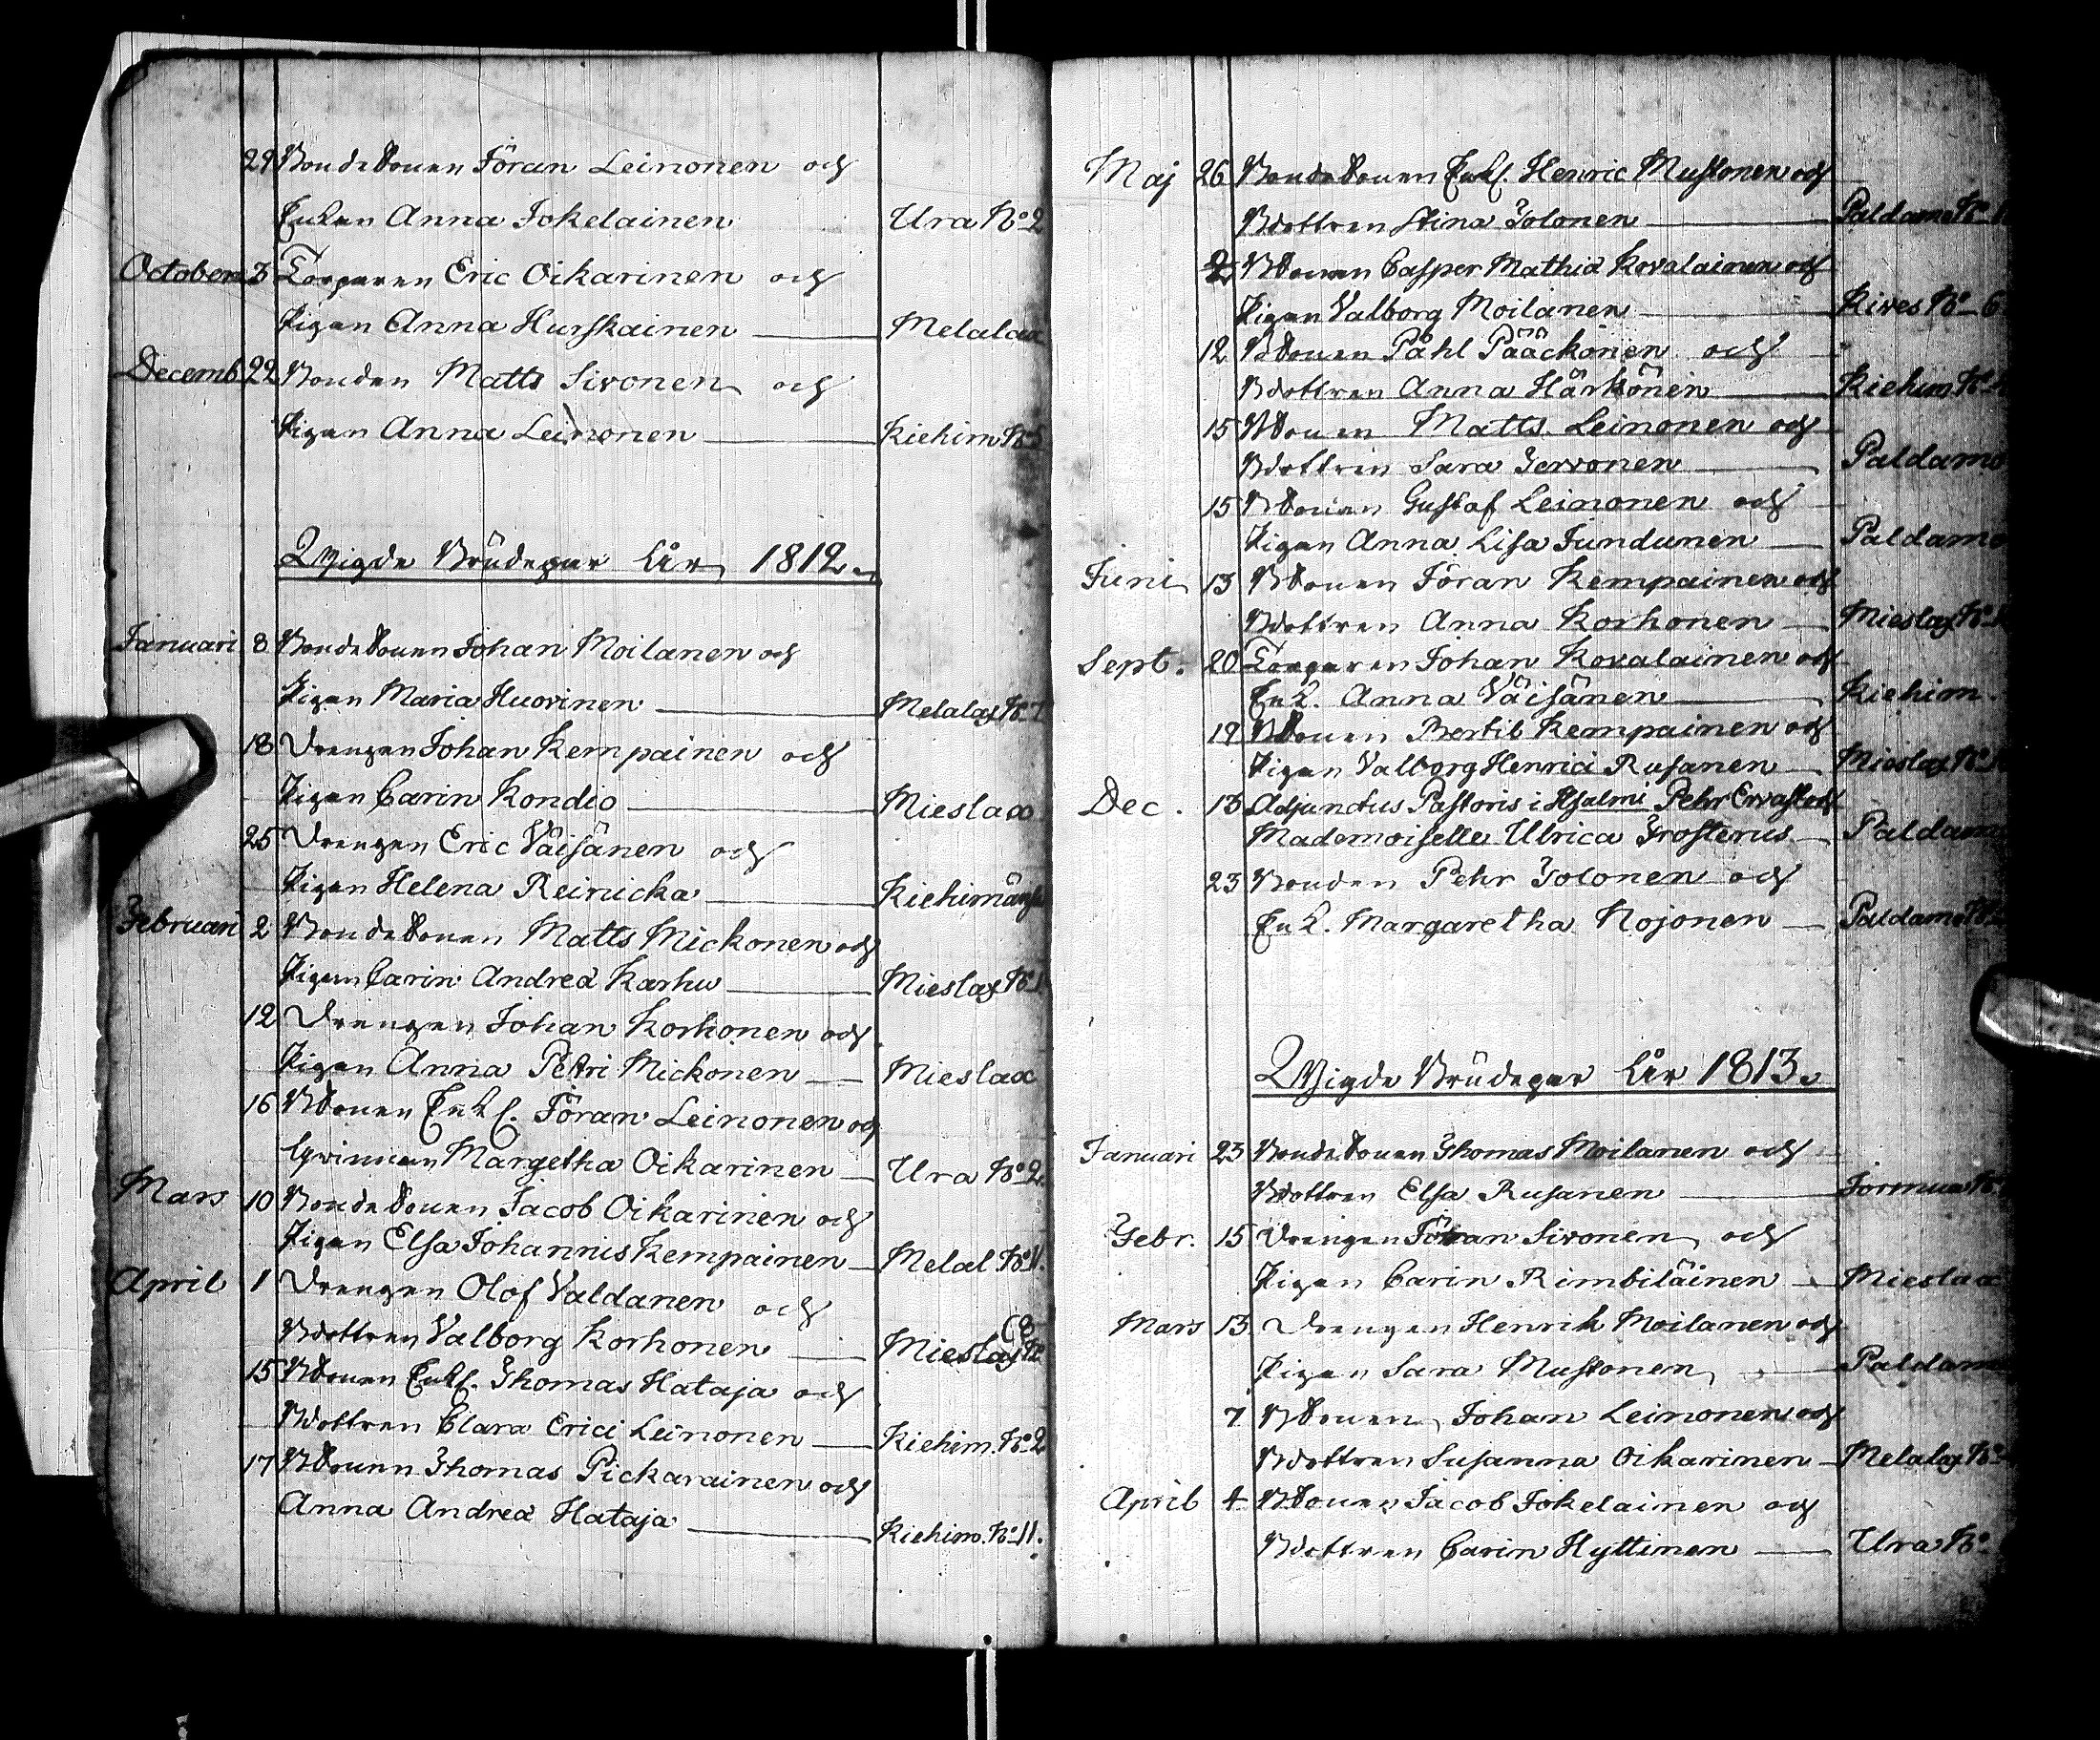 29 BondeSonen Jöran Leinonen och
Enkan Anna Jokelainen Ura No 2
October 3 Torparen Eric Oikarinen och
Pigan Anna Hurskainen Melalax
Decemb 22 Bonden Matts Sivonen och
Pigan Anna Leinonen Kiehim No 5
Wigde Brudepar År 1812.
Januari 8 BondeSonen Johan Moilanen och
Pigan Maria Huovinen Melalax No 7
18 Drengen Johan Kempainen och
Pigan Carin Kondio Mieslax
25 Drengen Eric Väisänen och
Pigan Helena Reinicka Kiehimä
Februari 2 BondeSonen Matts Mickonen och
Pigan Carin Andreæ Karhu Mieslax No 1
12 Drengen Johan Korhonen och
Pigan Anna Petri Mickonen Mieslax
16 BSonen Enkl. Jöran Leinonen och
Qvinnan Margetha Oikarinen Ura No 2
Mars 10 BondeSonen Jacob Oikarinen och
Pigan Elsa Johannis Kempainen Melal No 11.
April 1 Drengen Olof Valdanen och
Bdottren Valborg Korhonen Mieslax No 8
15 BSonen Enkl. Thomas Hataja och
Bdottren Clara Erici Leinonen Kiehim. No 2
17 BSonen Thomas Pickarainen och
Anna Andreæ Hataja Kiehim. No 11.
Maj 26 BondeSonen Enkl. Henric Mustonen och
Bdottren Stina Tolonen Paldamo No
2 BSonen Casper Mathiæ Kovalainen och
Pigan Valborg Moilanen Kives No 6
12 BSonen Påhl Pääckönen och
Bdottren Anna Härkönen Kiehim No
15 BSonen Matts Leinonen och
Bdottren Sara Tervonen Paldamo
15 BSonen Gustaf Leinonen och
Pigan Anna Lisa Jundunen Paldamo
Juni 13 BSonen Jöran Kempainen och
Bdottren Anna Korhonen Mieslax No
Sept. 20 Torparen Johan Kovalainen och
Enk. Anna Väisänen Kiehim.
19 BSonen Bertil Kempainen och
Pigan Valborg Henrici Rusanen Mieslax No
Dec. 13 Adjunctus Pastoris i Hsalmi Pehr Ervast och
Mademoiselle Ulrica Frosterus Paldamo
23 Bonden Pehr Tolonen och
Enk. Margaretha Nojonen Paldamo No
Wigde Brudepar År 1813.
Januari 23 BondeSonen Thomas Moilanen och
Bdottren Elsa Rusanen Jormua No
Febr. 15 Drengen Jöran Sivonen och
Pigan Carin Rimbiläinen Mieslax
Mars 13 Drengen Henrik Moilanen och
Pigan Sara Mustonen Paldamo
7 BSonen Johan Leinonen och
Bdottren Susanna Oikarinen Melalax No
April 4 BSonen Jacob Jokelainen och
Bdottren Carin Hyttinen Ura No